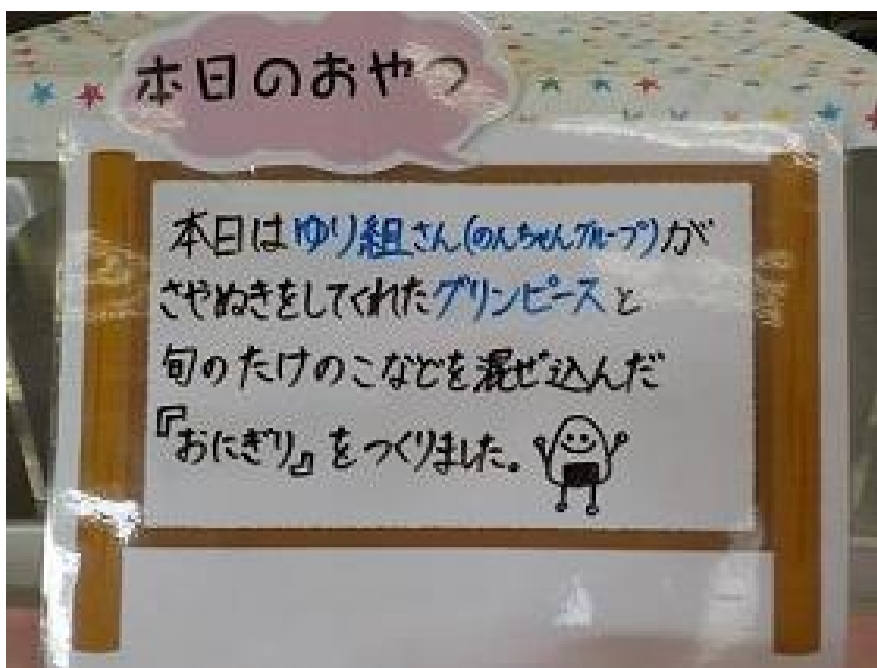 本日のおやつ
本日はゆり組さん(のんちゃんグループ)が
さやぬきをしてくれたグリンピースと
旬のたけのこなどを混ぜ込んだ
『おにぎり』をつくりました。